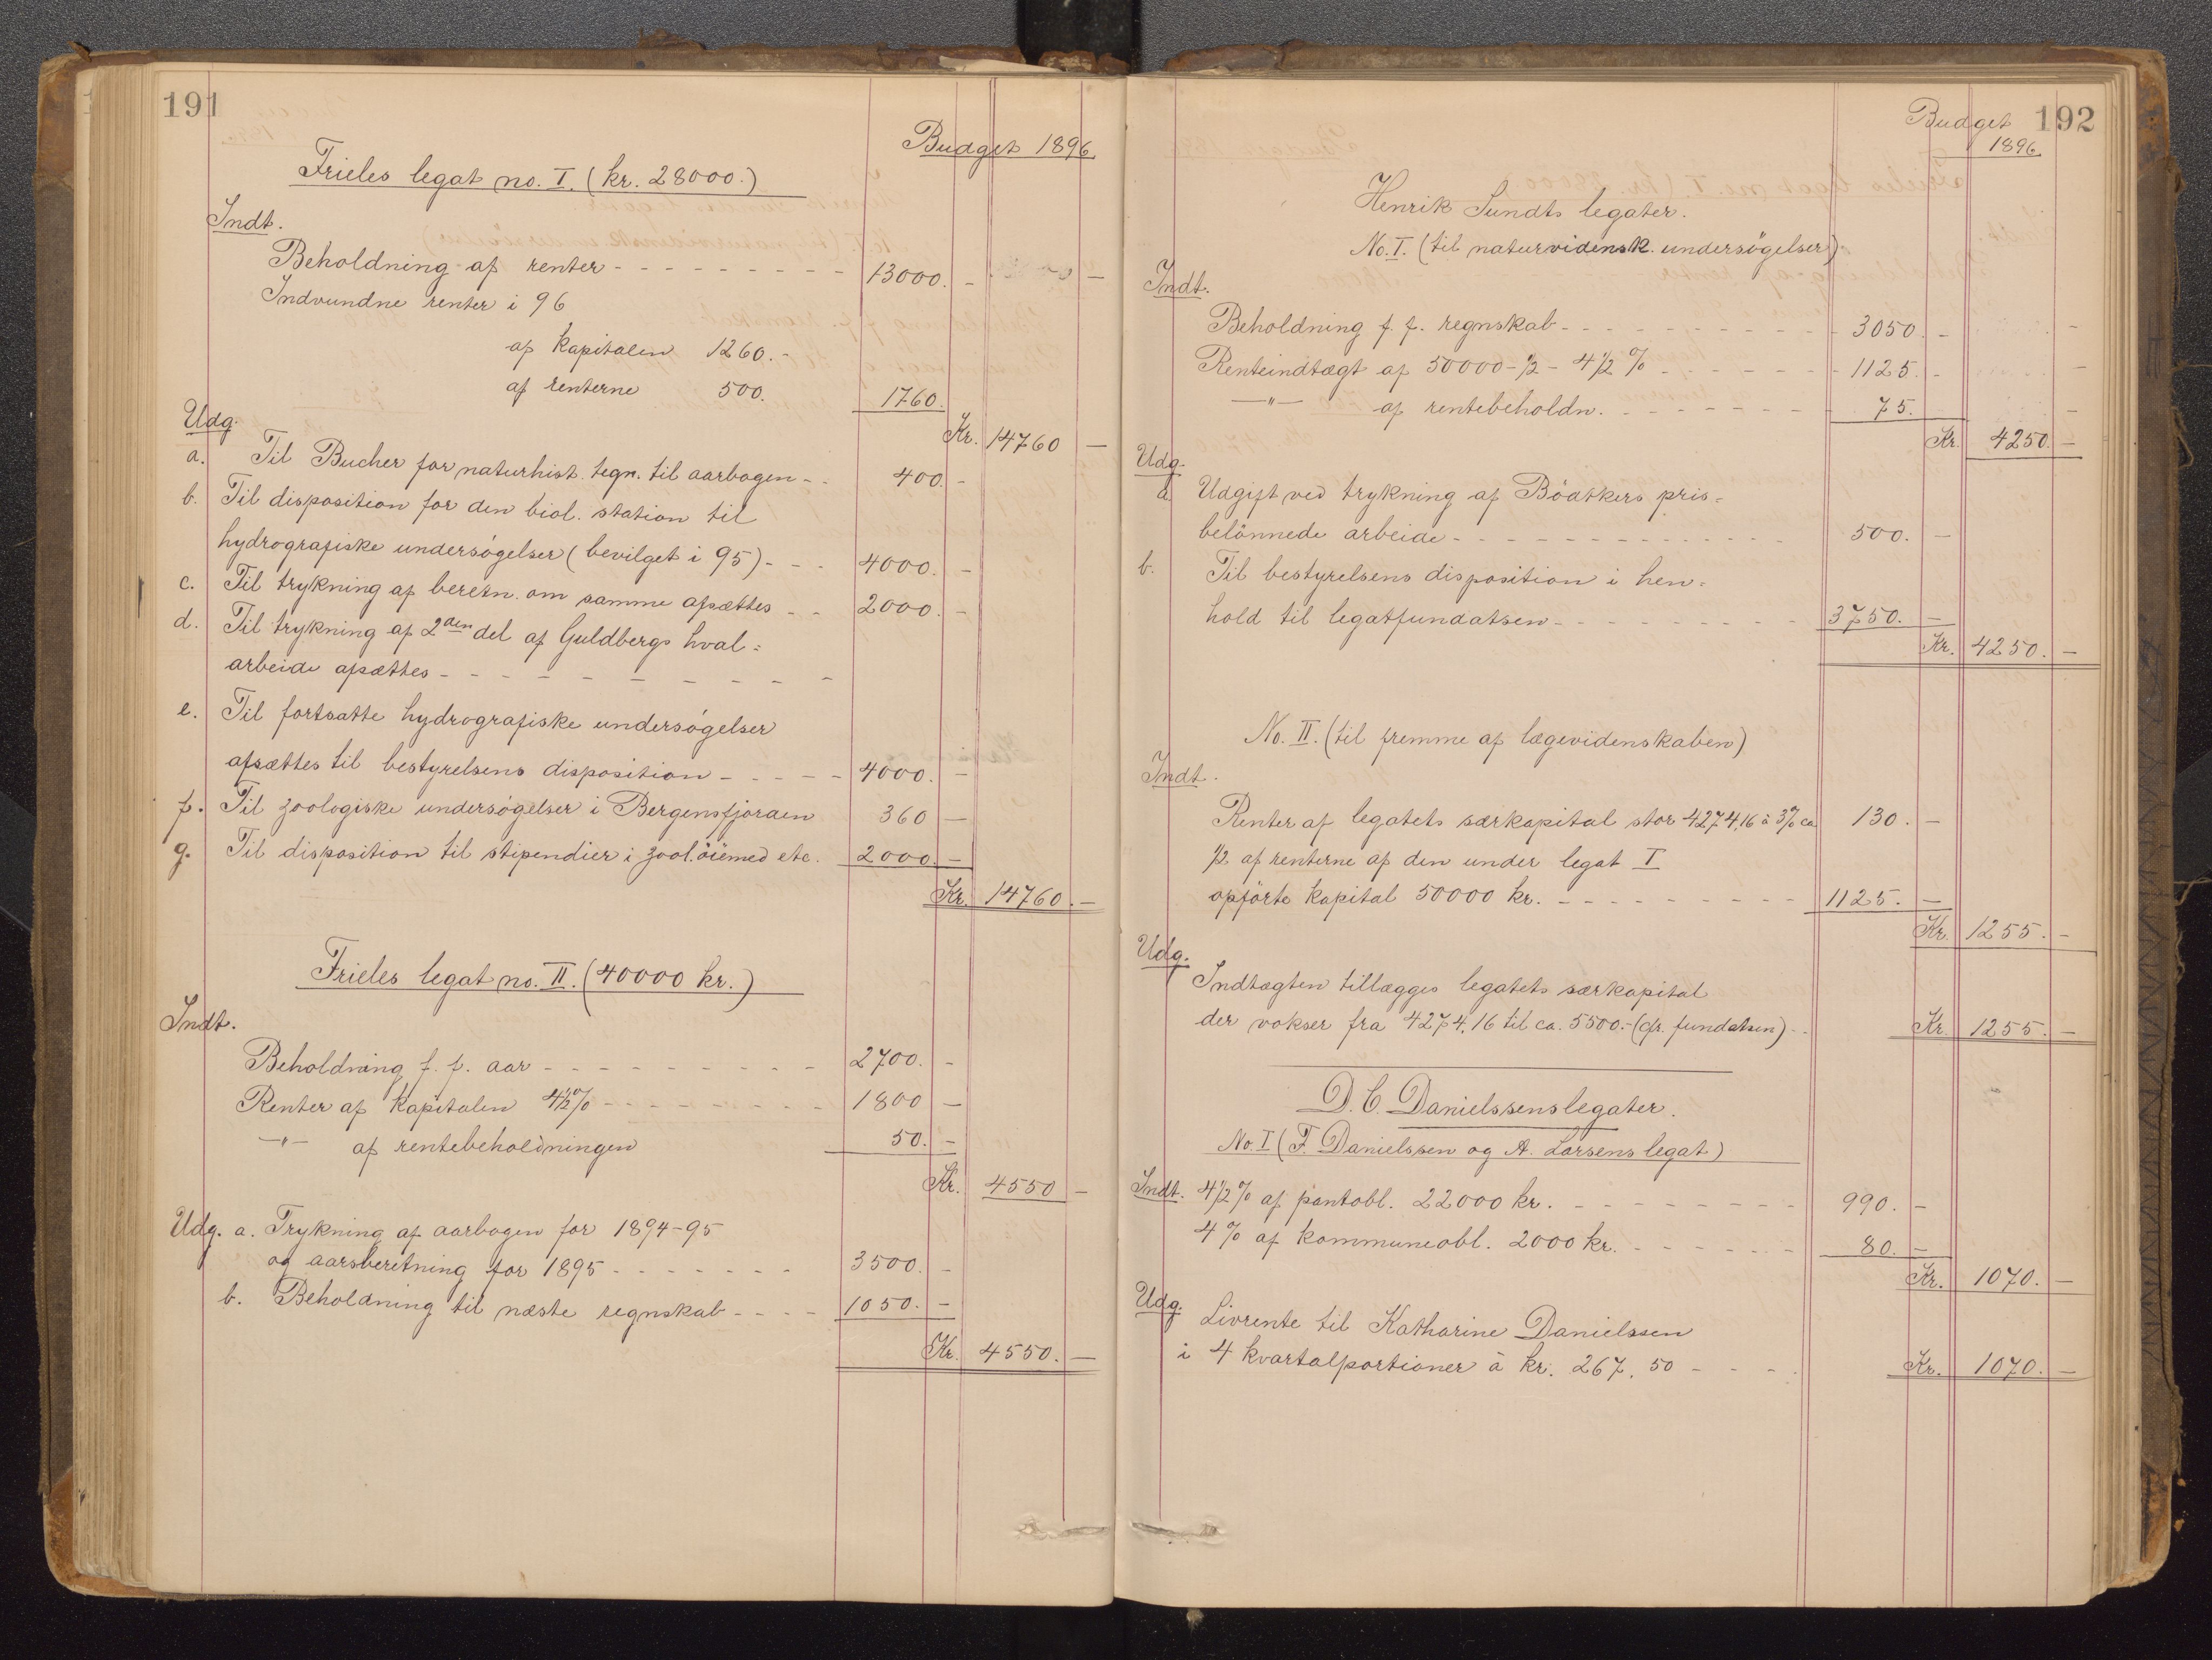 191
Budget 1896.
Frieles legat no. I. (kr. 28000.)
Indt.
Beholdning af renter - - - - - - - - - 13000. -
Indvundne renter i 96
af kapitalen 1260. -
af renterne 500. 1760.
Kr. 14760 -
Udg.
a. Til Bucher for naturhist. tegn. til aarbogen - - 400. -
b. Til disposition for den biol. station til
hydrografiske undersøgelser (bevilget i 95) - - - 4000. -
c. Til trykning af beretn. om samme afsættes - - 2000. -
d. Til trykning af 2den del af Guldbergs hval=
arbeide afsættes - - - - - - - - - - -
e. Til fortsatte hydrografiske undersøgelser
afsættes til bestyrelsens disposition - - - - - 4000. -
f. Til zoologiske undersøgelser i Bergensfjorden 360 -
g. Til disposition til stipendier i zool. öiemed etc. 2000. -
Kr. 14760. -
Frieles legat no. II. (40000 kr.)
Indt.
Beholdning f. f. aar - - - - - - - - - - 2700. -
Renter af kapitalen 4½% - - - - - - - - 1800 -
-"- af rentebeholdningen 50. -
Kr. 4550 -
Udg. a. Trykning af aarbogen for 1894-95
og aarsberetning for 1895 - - - - - - - 3500. -
b. Beholdning til næste regnskab - - - - 1050. -
Kr. 4550. -
192
Budget
1896.
Henrik Sundts legater.
No. I. (til naturvidensk. undersögelser)
Indt.
Beholdning f. f. regnskab - - - - - - - - - - - 3050. -
Renteindtægt af 50000 - ½ - 4½ % - - - - - - - 1125. -
-"- af rentebeholdn. - - - - - - - - 75.
Kr. 4250. -
Udg.
a. Udgift ved trykning af Böatkers pris=
belönnede arbeide - - - - - - - - - - - - - - 500. -
b. Til bestyrelsens disposition i hen=
hold til legatfundatsen - - - - - - - - - - 3750. -
Kr. 4250. -
No. II. (til fremme af lægevidenskaben)
Indt.
Renter af legatets særkapital stor 4274,16 à 3% ca 130. -
½ af renterne af den under legat I
opförte kapital 50000 kr. - - - - - - - - - - 1125. -
Kr. 1255. -
Udg.
Indtægten tillægges legatets særkapital
der vokser fra 4274,16 til ca. 5500.- (cfr. fundatsen) - - Kr. 1255. -
D. C. Danielssens legater.
No. I (F. Danielssen og A. Larsens legat)
Indt. 4½% af pantobl. 22000 kr. - - - - - - - - - 990. -
4 % af kommuneobl. 2000 kr. - - - - - - - 80. -
Kr. 1070. -
Udg. Livrente til Katharine Danielssen
i 4 kvartalportioner à kr. 267,50 - - - - Kr. 1070. -